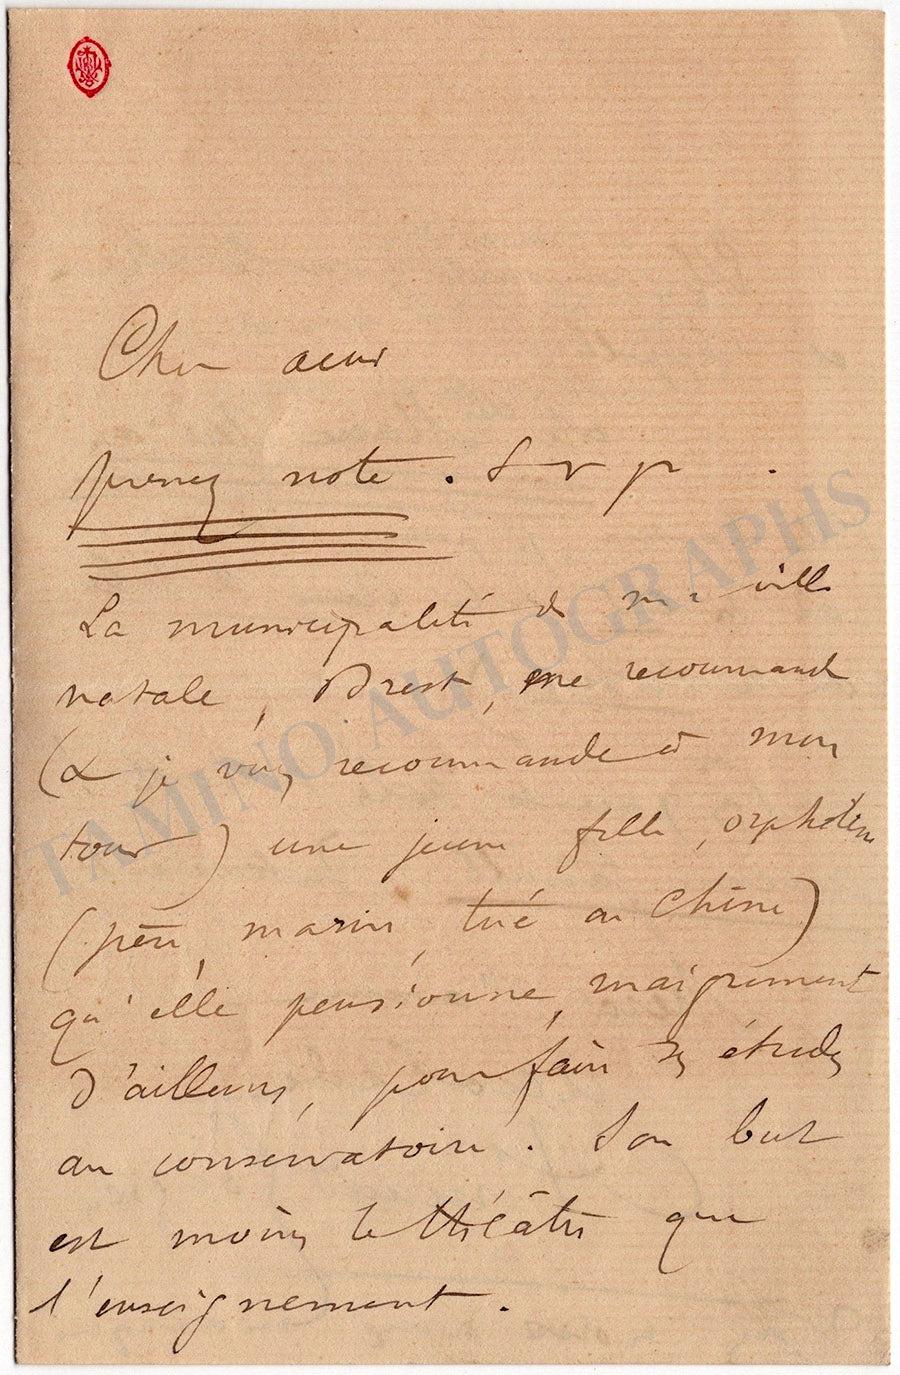 Cher ami
prenez note. S v p.
La municipalité de ma ville
natale, Brest, me recommande
(& je vous recommande à mon
tour) une jeune fille, orpheline
(père, marin, tué en Chine)
qu'elle pensionne, maigrement
d'ailleurs, pour faire ses études
au conservatoire. Son but
est moins le théâtre que
l'enseignement.
TAMINO AUTOGRAPHS